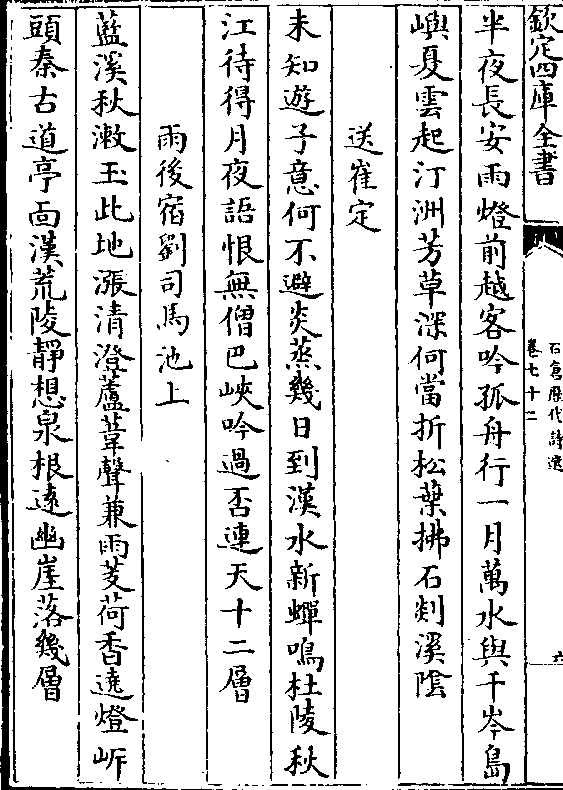 欽定四庫全書
石倉歷代詩選
卷七十二
六
半夜長安雨燈前越客吟孤舟行一月萬水與千岑島
嶼夏雲起汀洲芳草深何當折松葉拂石剡溪陰
送崔定
未知遊子意何不避炎蒸幾日到漢水新蟬鳴杜陵秋
江待得月夜語恨無僧巴峽吟過否連天十二層
雨後宿劉司馬池上
藍溪秋漱玉此地漲清澄蘆葦聲兼雨芰荷香遶燈岍
頭秦古道亭面漢荒陵靜想泉根遠幽崖落幾層